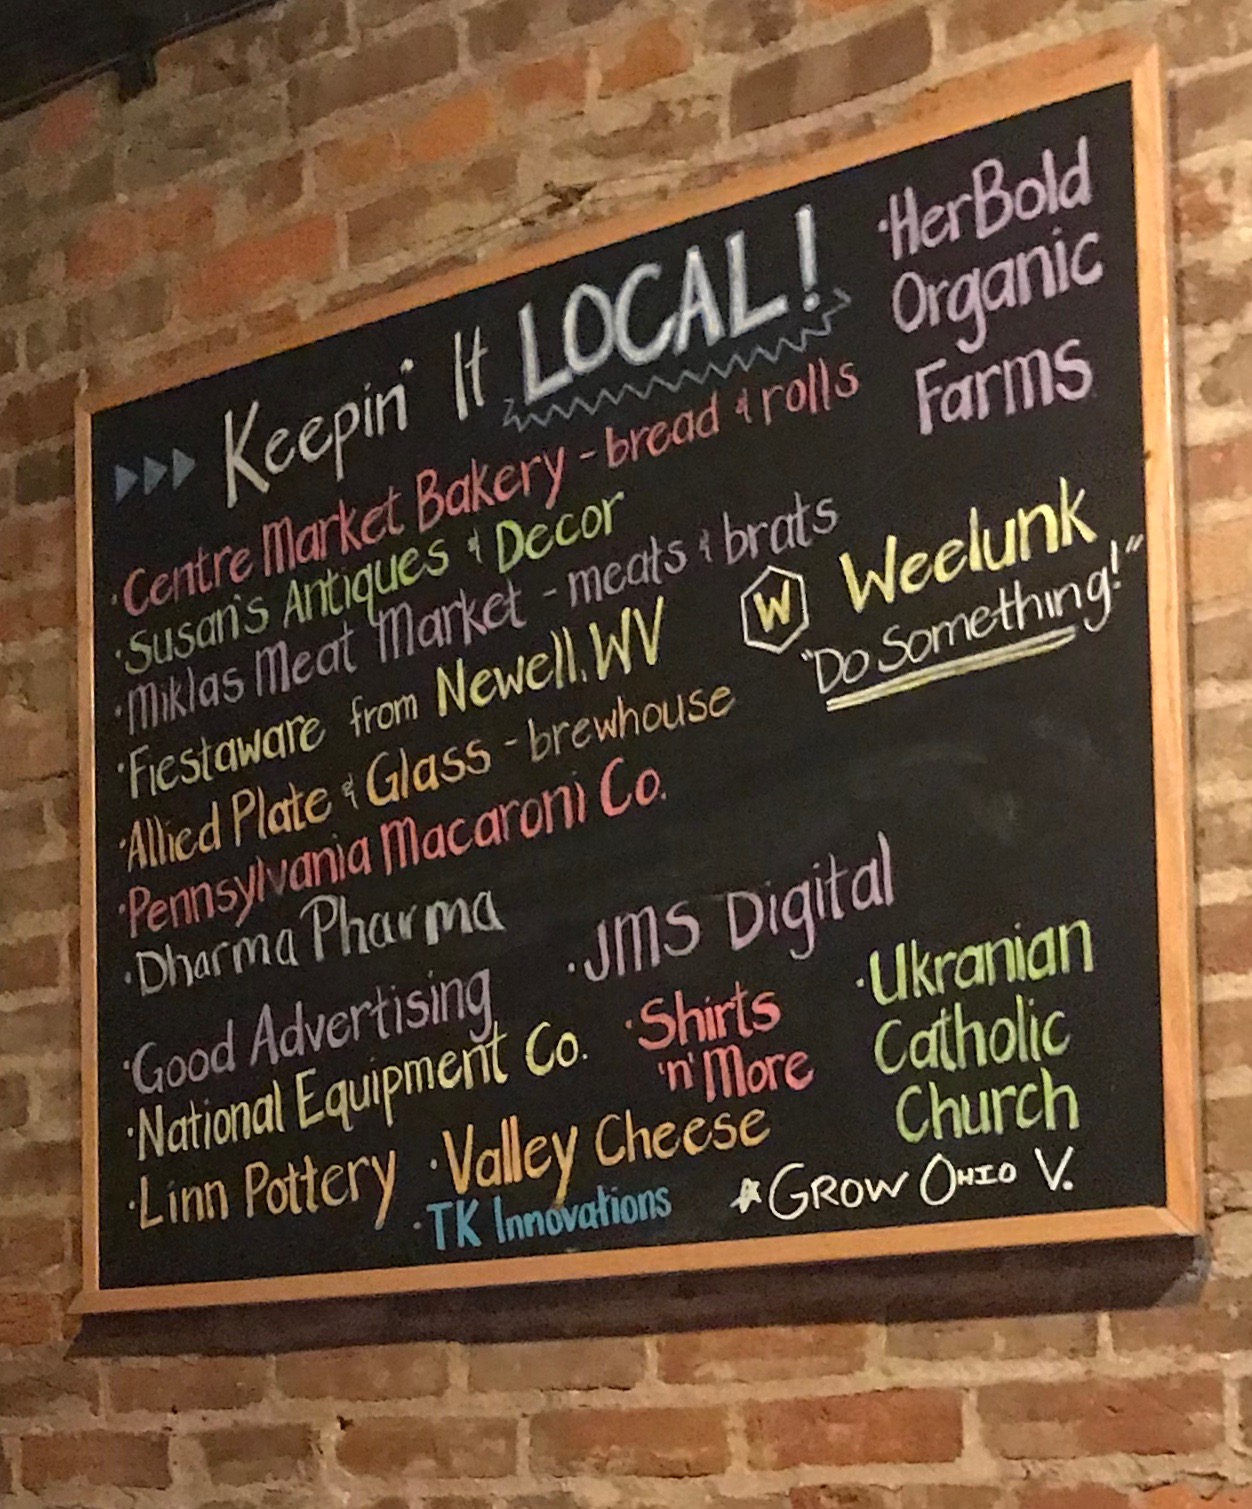 Keepin' It LOCAL!
·Centre Market Bakery - bread & rolls
·Susan's Antiques & Decor
·Miklas Meat Market - meats & brats
·Fiestaware from Newell, WV
·Allied Plate & Glass - brewhouse
·Pennsylvania Macaroni Co.
·Dharma Pharma
·Good Advertising
·National Equipment Co.
·Linn Pottery
·HerBold
Organic
Farms
W Weelunk
"Do Something!"
·JMS Digital
·Shirts
'n' More
·Ukranian
Catholic
Church
·Valley Cheese
·TK Innovations
*GROW OHIO V.